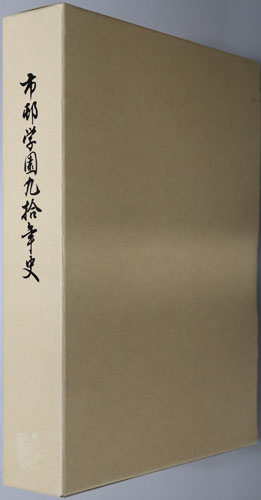 市邨学園九拾年史